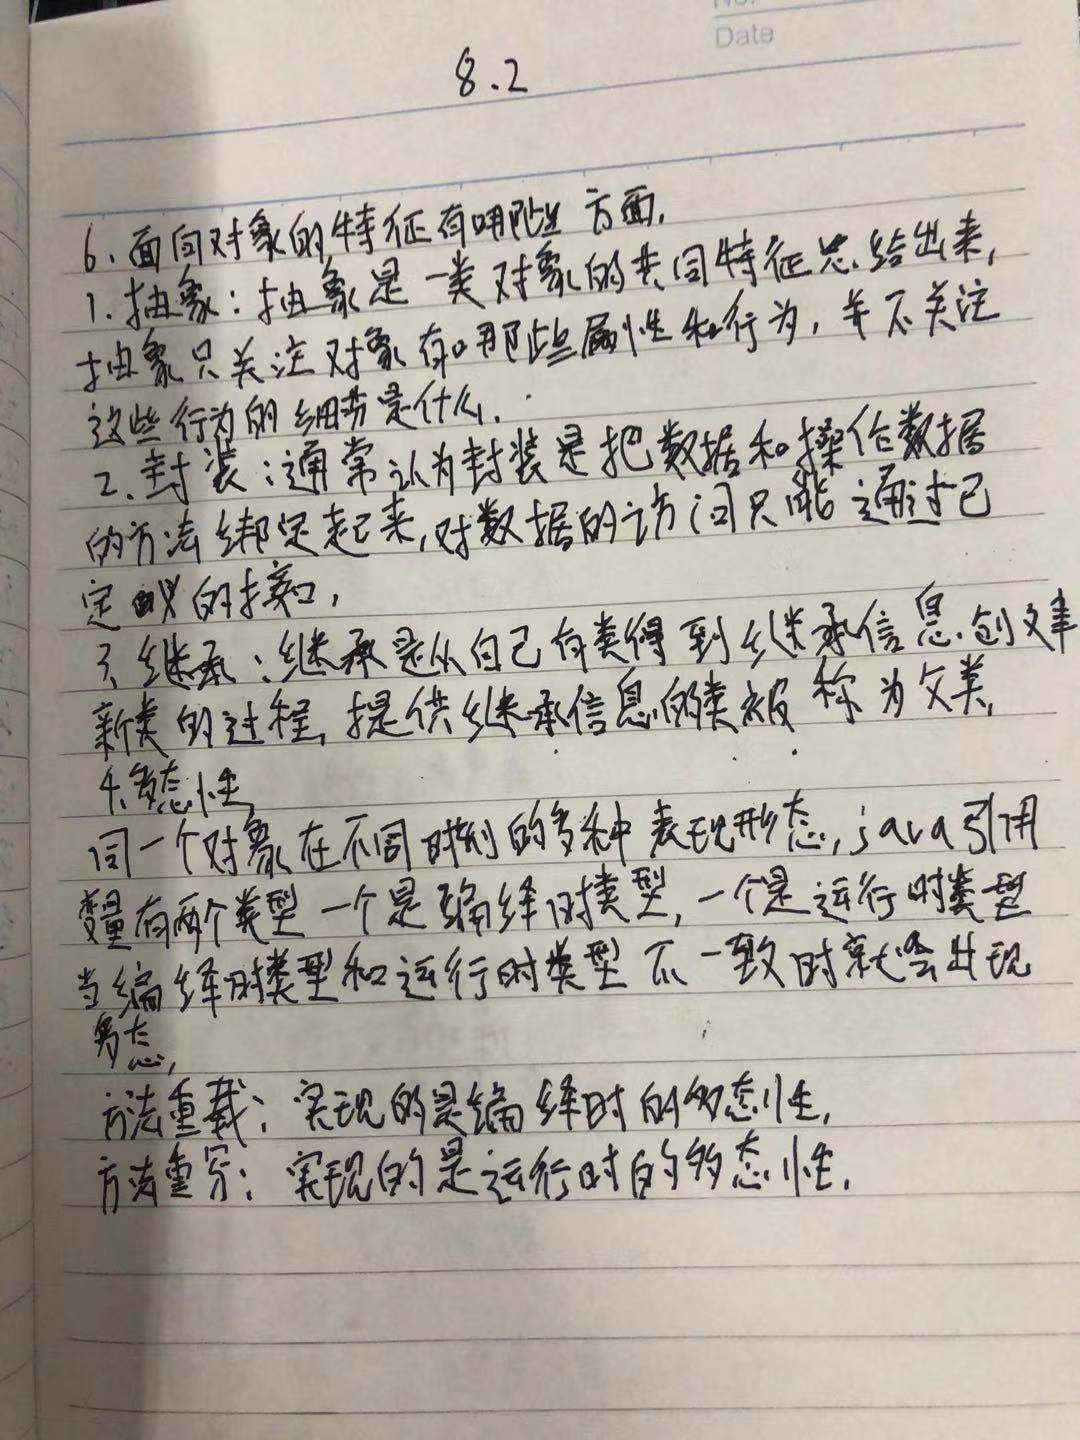 Date
8.2
6、面向对象的特征有哪些方面.
1.抽象:抽象是一类对象的共同特征总结出来,
抽象只关注对象有哪些属性和行为,并不关注
这些行为的细节是什么.
2.封装:通常认为封装是把数据和操作数据
的方法绑定起来,对数据的访问只能通过已
定义的接口,
3、继承:继承是从自己有类得到继承信息创建
新类的过程,提供继承信息的类被称为父类,
4、多态性
同一个对象在不同时刻的多种表现形态,java引用
变量有两个类型一个是编绎时类型,一个是运行时类型
当编绎时类型和运行时类型不一致时就会出现
多态,
方法重载:实现的是编绎时的多态性,
方法重写:实现的是运行时的多态性.